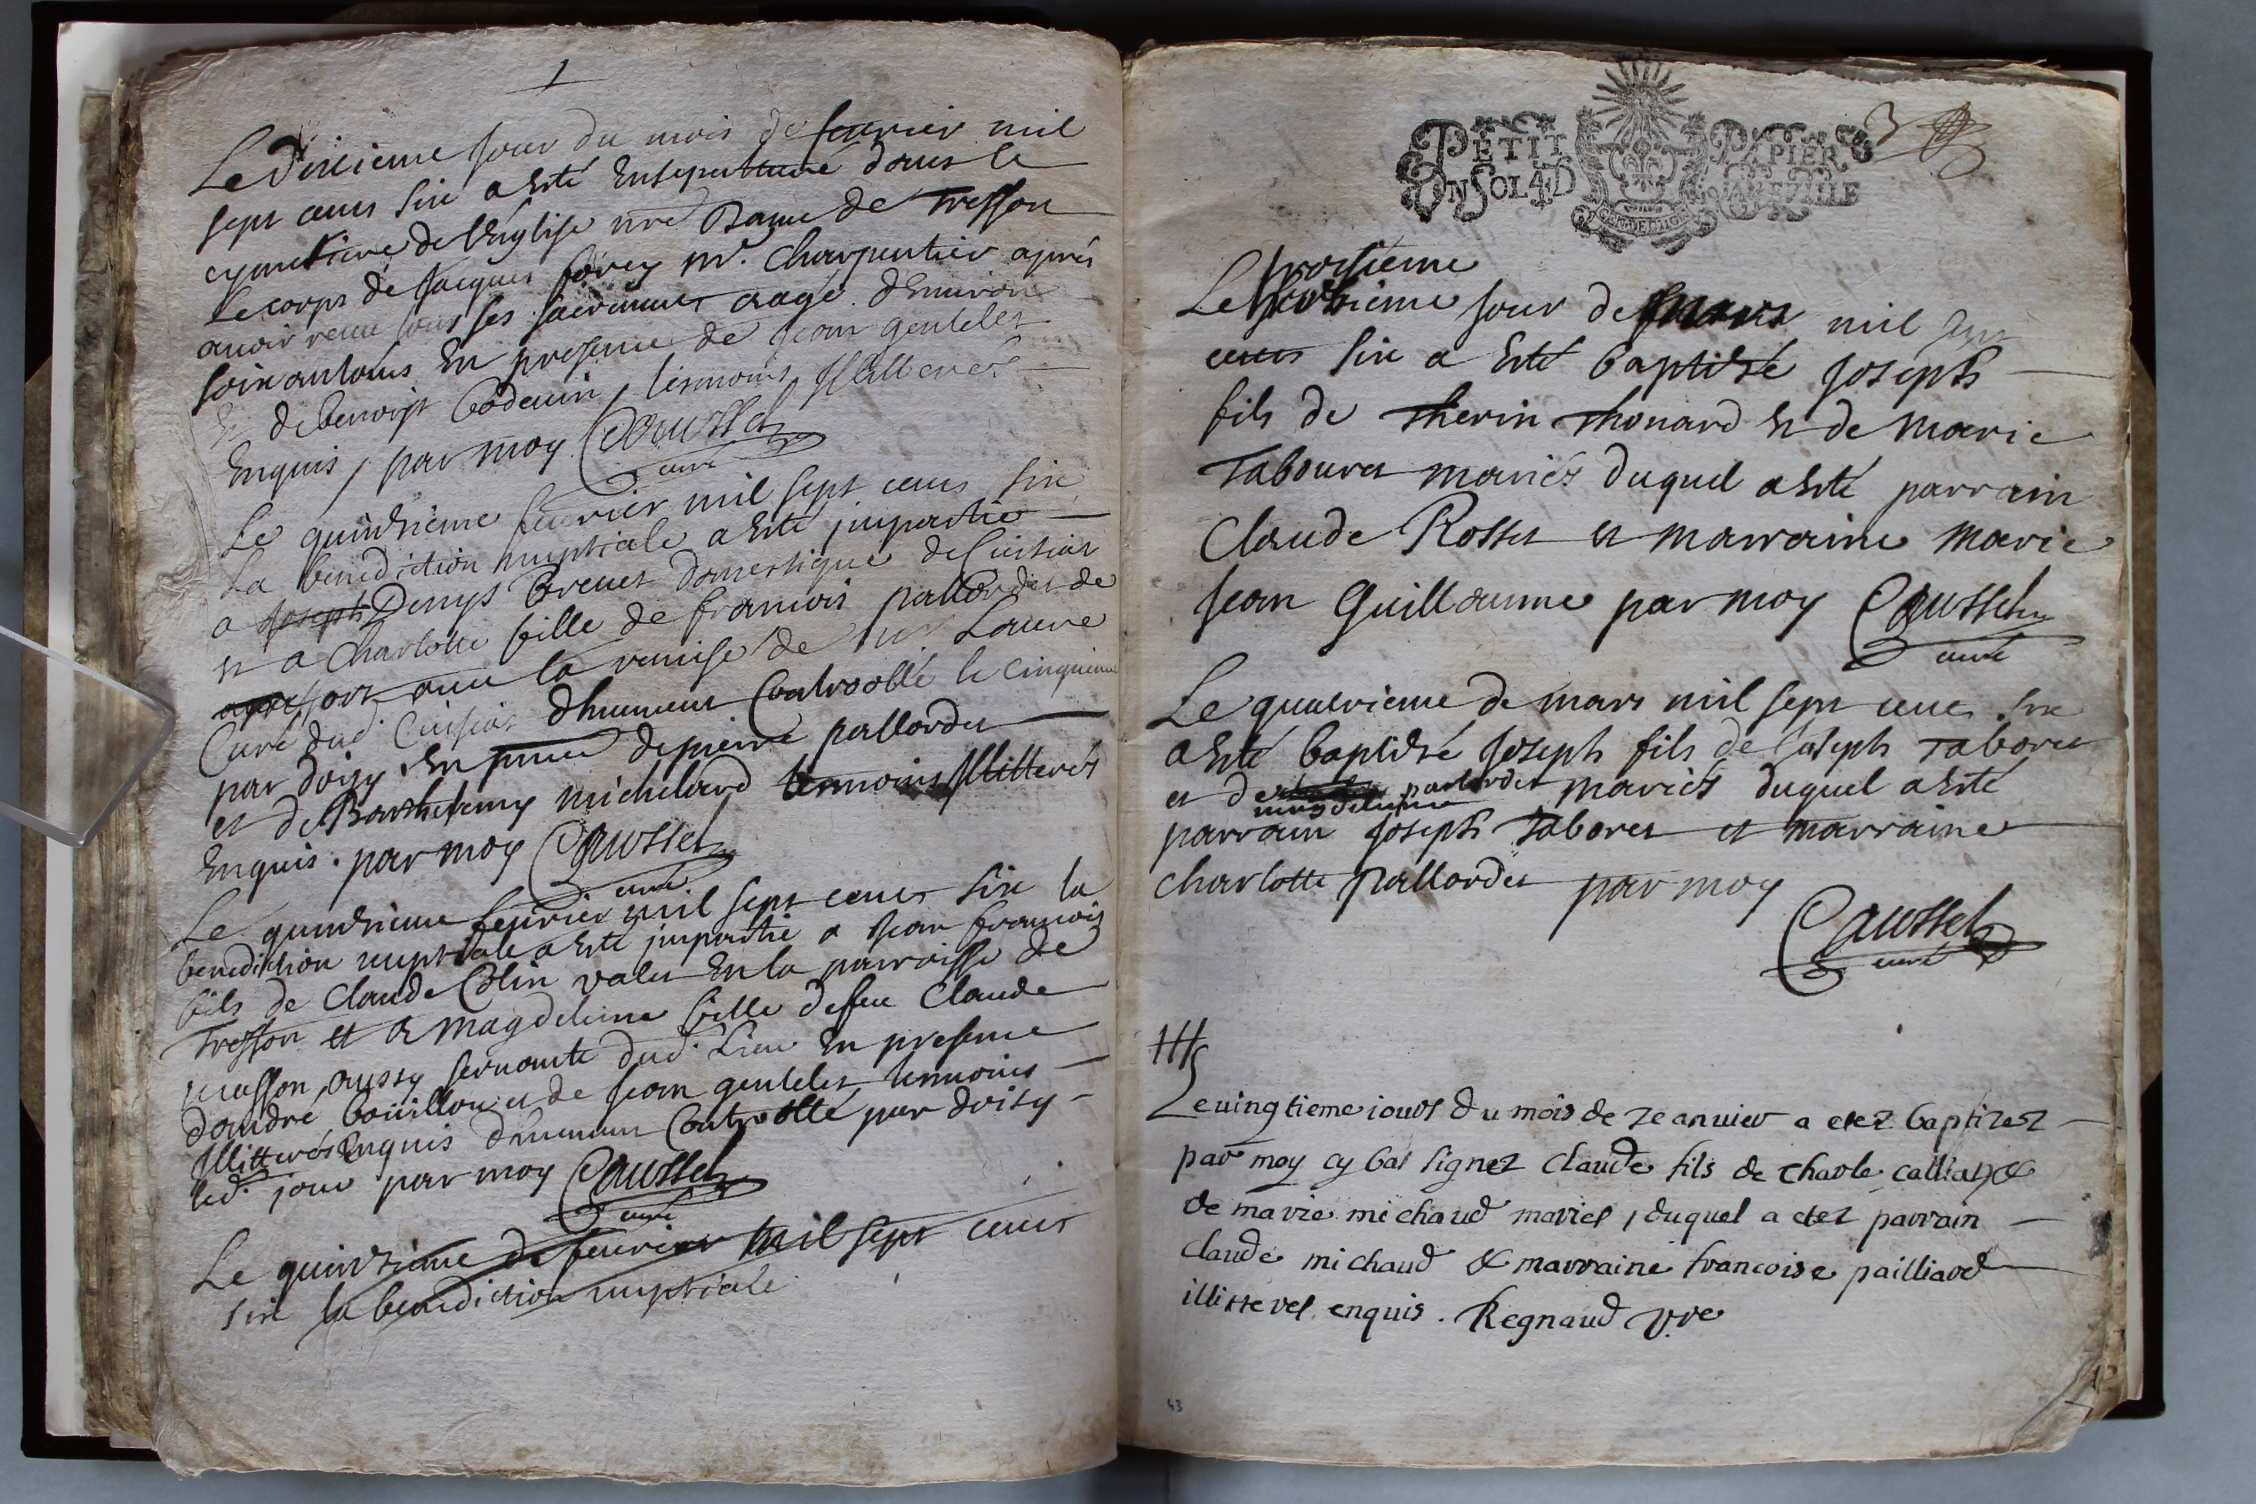 1
Le dixieme jour du mois de feurier mil
sept cens six a esté ensepulturé dans le
cymetiere de l'Eglise nre Dame de Tresson
Le corps de Jacques forey mr. Charpentier après
auoir receu tous ses sacremens aagé d'enuiron
soixantans en presence de Jean gentelet
et de benoist bodeuin, tesmoins Illiterés
enquis, par moy Caussel
curé
Le quinzieme feurier mil sept cens six
La benediction nuptiale a esté impartie
a Joseph Denys breuet domestique de Cuisiat
et a Charlotte fille de francois pallordet de
auec la remise de Laure
Curé dud. Cuisiat dhuement Controollé le cinquieme
par doisy. En pnce de pierre pallordet
et de Barthelemy michelard temoins Illitterés
enquis. par moy Caussel
curé
Le quinzieme feurier mil sept cens six la
benediction nuptiale a esté impartie a Jean francois
fils de Claude Colin valet en la parroisse de
Tresson et a Magdeleine fille de feu Claude
aussy seruante dud. Lieu. en presence
dandré boüillon et de Jean gentelet temoins
Illitterés enquis Controllé par doisy
led. jour par moy Caussel
curé
Le quinzieme de feurier mil sept cens
six la benediction nuptiale
PETIT PAPIER
UN SOL 4 D
3
troisieme
Le jour de mars mil sept
cens six a esté baptizé Joseph
fils de Therin Thonard et de Marie
Tabouret mariés duquel a esté parrain
Claude Rosset et marraine Marie
Jean Guillaume par moy Caussel
curé
Le quatrieme de mars mil sept cens six
a esté baptizé Joseph fils de Joseph Taboret
et de pallordet mariés duquel a esté
magdeleine
parrain Joseph Taboret et marraine
Charlotte Pallordet par moy
Caussel
curé
Le uingtieme iours du mois de zeanuier a etez baptizez
par moy cy bas signez Claude fils de Charle calliat &
de marie michaud maries, duquel a etez parrain
Claude michaud & marraine francoise pailliard
illitteres enquis. Regnaud vre
43